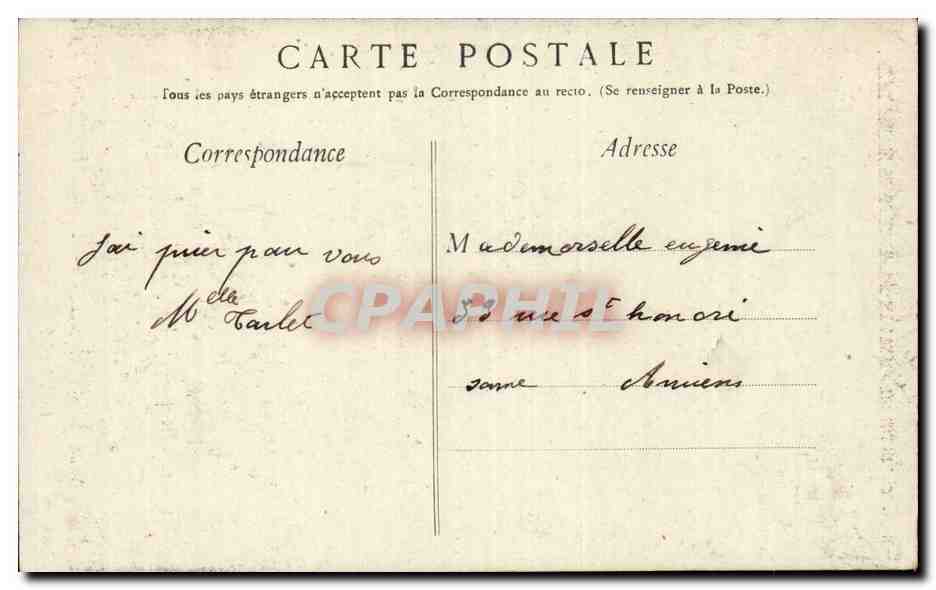 CARTE POSTALE
Tous les pays étrangers n'acceptent pas la Correspondance au recto. (Se renseigner à la Poste.)
Correspondance
J'ai prier pour vous
Melle Tarlet
Adresse
Mademorselle eugenie
53 rue St honoré
some Amiens
CPAPHIL